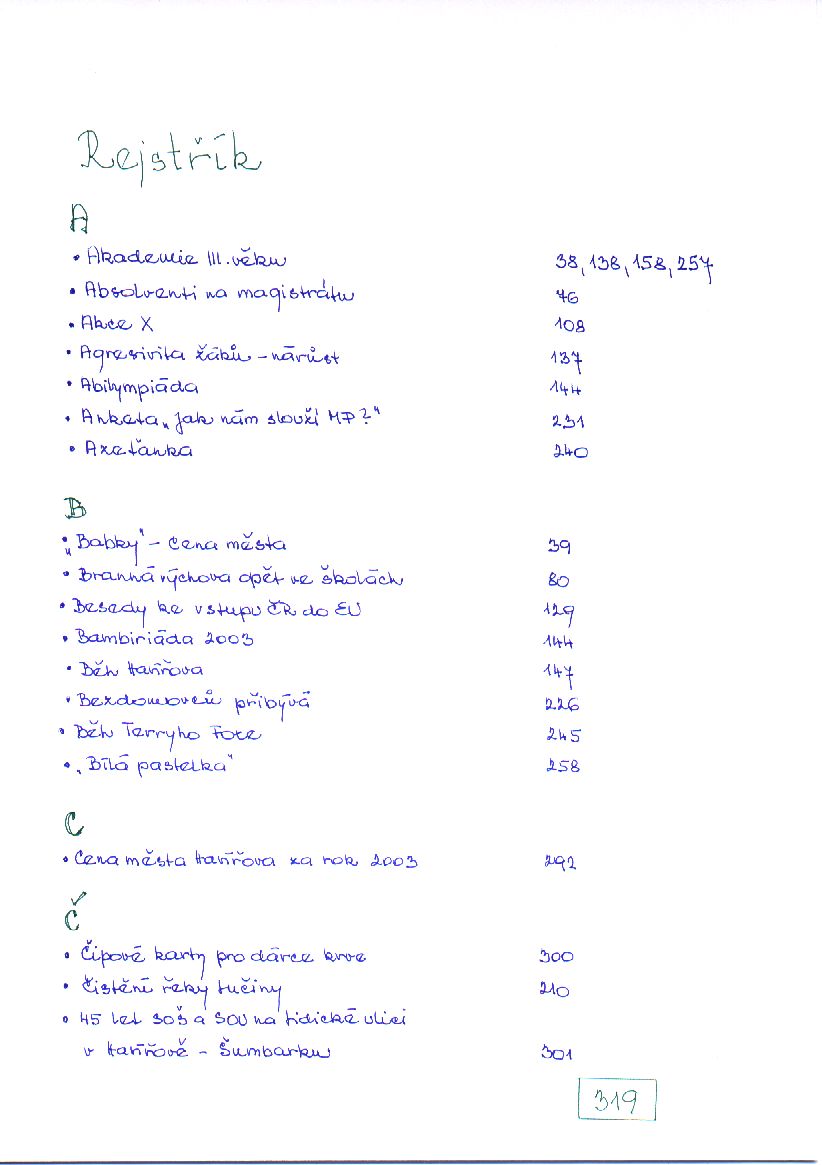 Rejstřík
A
• Akademie III. věku 38, 138, 158, 257
• Absolventi na magistrátu 76
• Akce X 108
• Agresivita žáků - nárůst 137
• Abilympiáda 144
• Anketa „Jak nám slouží MP?" 231
• Axeťanka 240
B
• „Babky" - cena města 39
• Branná výchova opět ve školách 80
• Besedy ke vstupu ČR do EU 129
• Bambiriáda 2003 144
• Běh Havířova 147
• Bezdomovců přibývá 226
• Běh Terryho Foxe 245
• „Bílá pastelka" 258
C
• Cena města Havířova za rok 2003 292
Č
• Čipové karty pro dárce krve 300
• Čistění řeky Lučiny 210
• 45 let SOŠ a SOU na Lidické ulici
v Havířově - Šumbarku 301
319